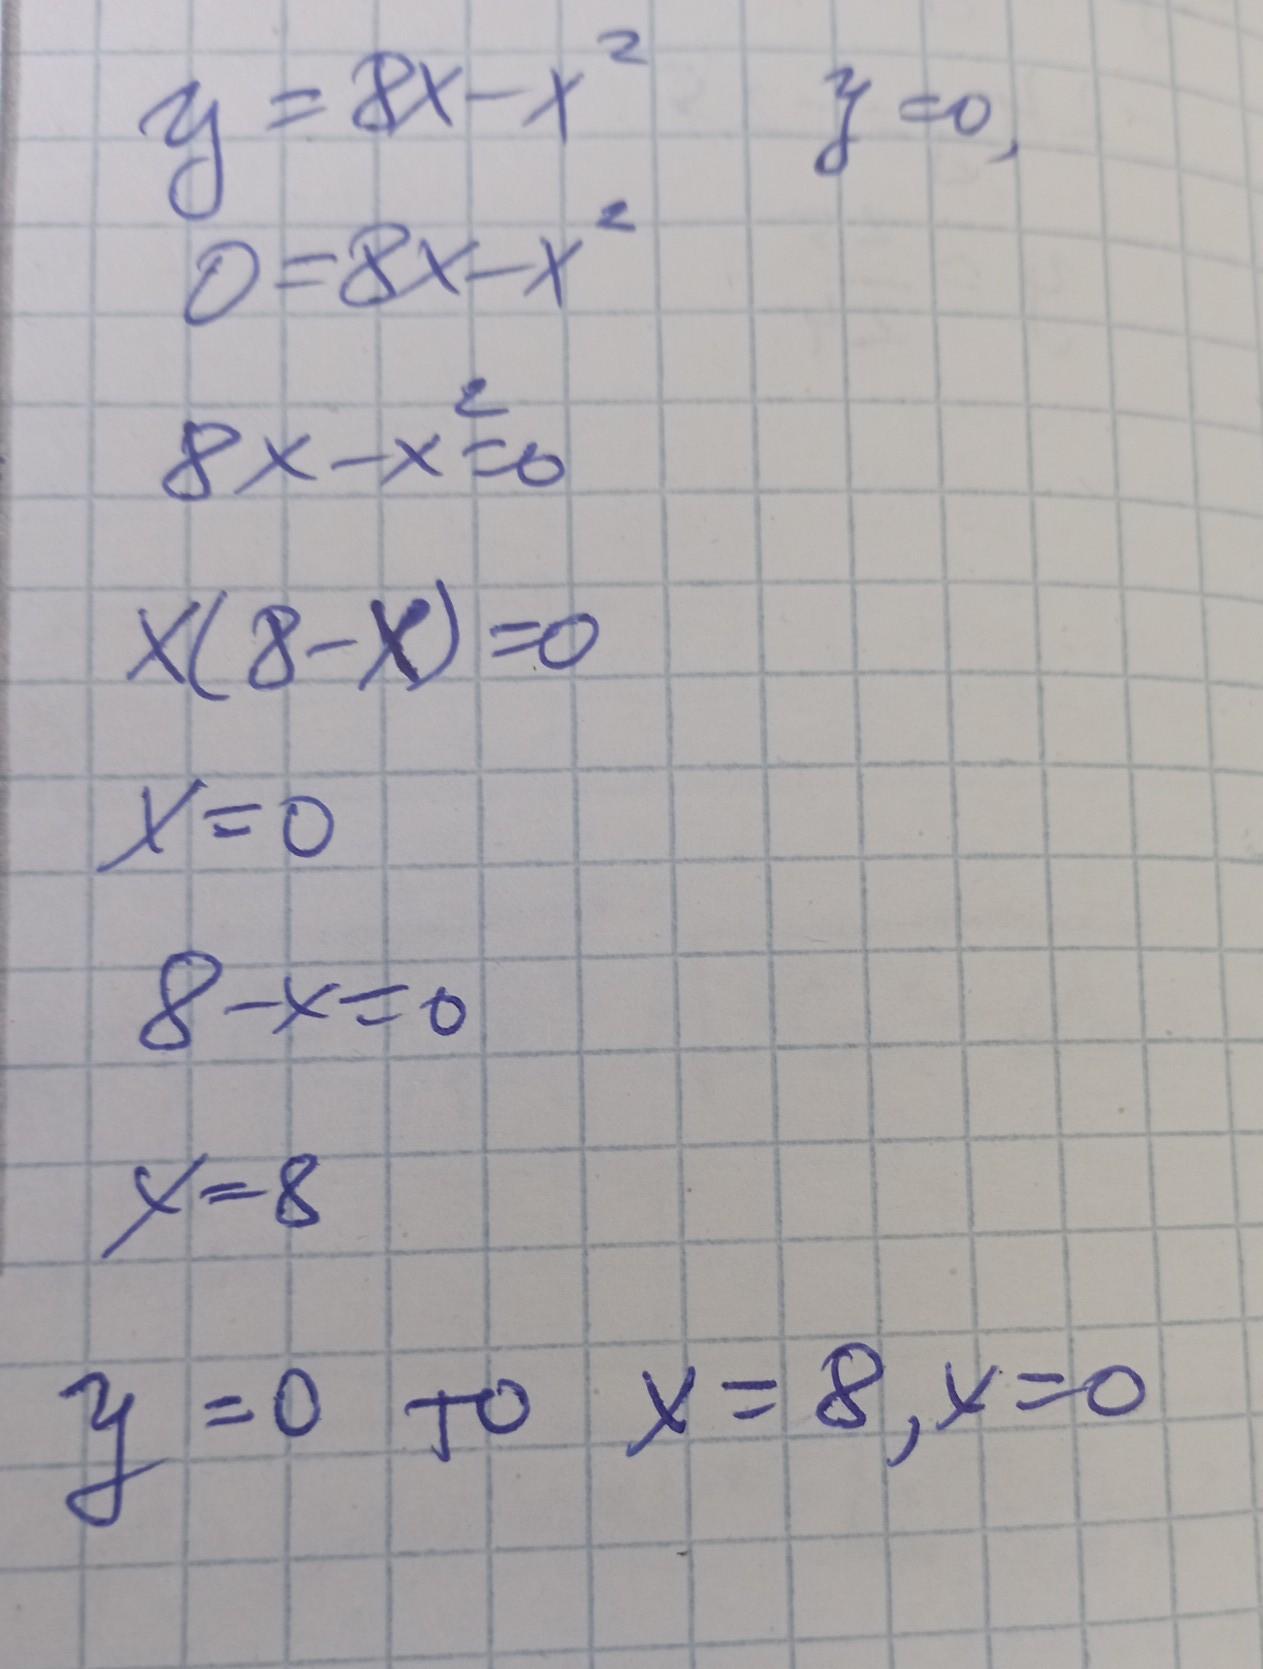 y = 8x - x² y = 0,
0 = 8x - x²
8x - x² = 0
x(8 - x) = 0
x = 0
8 - x = 0
x = 8
y = 0 то x = 8, x = 0